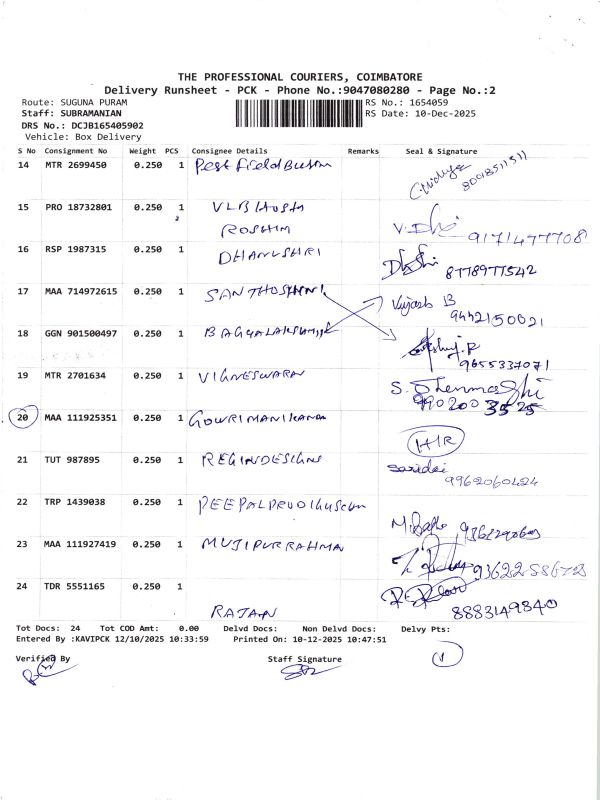 THE PROFESSIONAL COURIERS, COIMBATORE
Delivery Runsheet - PCK - Phone No.:9047080280 - Page No.:2
Route: SUGUNA PURAM RS No.: 1654059
Staff: SUBRAMANIAN RS Date: 10-Dec-2025
DRS No.: DCJB165405902
Vehicle: Box Delivery
S No Consignment No Weight PCS Consignee Details Remarks Seal & Signature
14 MTR 2699450 0.250 1
8001
15 PRO 18732801 0.250 1 VLB
2 ROSHIN V.
9171477708
16 RSP 1987315 0.250 1 DHANUSHRI
8778977542
17 MAA 714972615 0.250 1 SANTHOSHINI
B
9442150021
18 GGN 901500497 0.250 1
9655337071
19 MTR 2701634 0.250 1 VIGNESWARAN S.
990200 3525
20 MAA 111925351 0.250 1 GOWRIMANIKANDA
HR
21 TUT 987895 0.250 1 REGINDESIGNS
9962060424
22 TRP 1439038 0.250 1
23 MAA 111927419 0.250 1 MUJIPURRAHMAN
24 TDR 5551165 0.250 1
RAJAN 8883149840
Tot Docs: 24 Tot COD Amt: 0.00 Delvd Docs: Non Delvd Docs: Delvy Pts:
Entered By :KAVIPCK 12/10/2025 10:33:59 Printed On: 10-12-2025 10:47:51
1
Verified By Staff Signature